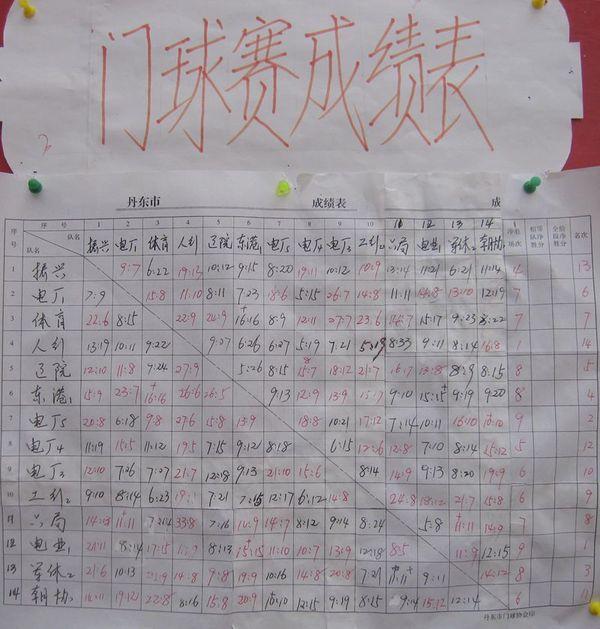 门球赛成绩表
丹东市 成绩表 成
序号 序号 1 2 3 4 5 6 7 8 9 10 11 12 13 14 净胜场次 相等队净胜分 全阶段净胜分 名次
队名 队名 振兴 电厂1 体育 人纠 辽院 东港1 电厂5 电厂4 电厂3 工纠2 六局 电业1 军休2 朝协2
1 振兴 9:7 6:22 10:12 9:15 8:20 19:11 10:12 10:9 13:14 11:21 6:21 11:14 4 13
2 电厂1 7:9 15:8 11:10 8:11 7:23 5:15 26:7 14:8 11:11 13:10 12:19 7 6
3 体育 22:6 8:15 22:9 24:9 16:16 8:9 12:11 27:7 23:6 15:17 9:23 8:22 7 7
4 人纠 13:19 10:11 9:22 9:27 6:26 6:27 5:19 7:21 5:19 8:33 9:11 8:14 16:8 1 14
5 辽院 12:10 11:8 9:24 27:9 5:26 8:15 15:7 18:12 21:7 16:7 13:8 8:9 8:15 8 5
6 东港1 15:9 23:7 16:16 26:6 26:5 9:13 12:9 13:9 15:7 9:10 15:15 9:19 9:20 8 4
7 电厂5 20:8 6:18 9:8 27:6 15:8 13:9 18:8 10:21 17:12 7:14 10:11 16:10 10:10 9 2
8 电厂4 11:19 15:5 11:12 19:5 7:15 9:12 8:18 6:15 12:6 12:8 7:10 8:14 15:12 5 12
9 电厂3 12:10 7:26 7:27 21:7 12:18 9:13 21:10 15:6 8:14 14:9 9:13 8:20 19:9 6 10
10 工纠2 9:10 8:14 6:23 19:5 7:21 7:15 12:17 6:12 14:8 24:8 18:12 21:7 15:8 6 9
11 六局 14:13 11:11 7:14 33:8 7:16 10:9 14:7 8:12 9:14 8:24 5:8 11:11 14:9 7 8
12 电业1 21:11 8:14 17:15 11:9 8:13 15:15 11:10 10:7 13:9 12:18 8:5 11:9 12:15 9 1
13 军休2 21:6 10:13 23:9 14:8 9:8 19:9 10:16 14:8 20:8 7:21 11:11 9:11 14:12 8 3
14 朝协2 14:11 19:12 22:8 8:16 15:8 20:9 10:10 12:15 9:19 8:15 9:14 15:12 12:14 6 11
丹东市门球协会印